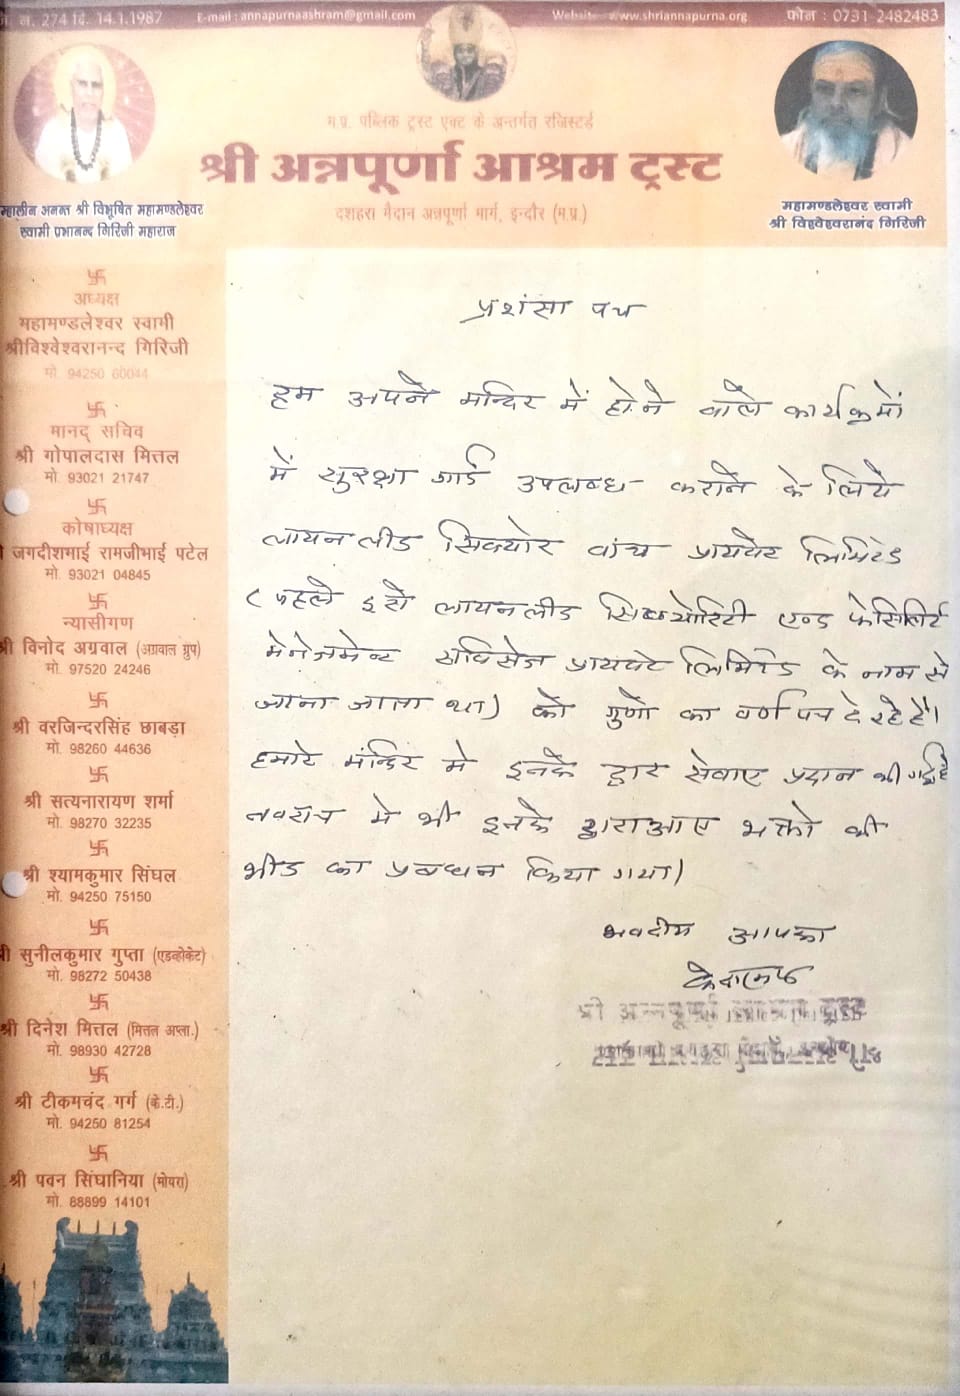 . न. 274 दि. 14.1.1987 E-mail : annapurnaashram@gmail.com Website www.shriannapurna.org फोन : 0731 2482483
म.प्र. पब्लिक ट्रस्ट एक्ट के अन्तर्गत रजिस्टर्ड
श्री अन्नपूर्णा आश्रम ट्रस्ट
दशहरा मैदान अन्नपूर्णा मार्ग, इन्दौर (म.प्र.)
म्हालीन अनन्त श्री विभूषित महामण्डलेश्वर
स्वामी प्रभानन्द गिरिजी महाराज
महामण्डलेश्वर स्वामी
श्री विश्वेश्वरानंद गिरिजी
अध्यक्ष
महामण्डलेश्वर स्वामी
श्रीविश्वेश्वरानन्द गिरिजी
मो. 94250 60044
मानद् सचिव
श्री गोपालदास मित्तल
मो. 93021 21747
कोषाध्यक्ष
जगदीशभाई रामजीभाई पटेल
मो. 93021 04845
न्यासीगण
श्री विनोद अग्रवाल (अग्रवाल ग्रुप)
मो. 97520 24246
श्री वरजिन्दरसिंह छाबड़ा
मो. 98260 44636
श्री सत्यनारायण शर्मा
मो. 98270 32235
श्री श्यामकुमार सिंघल
मो. 94250 75150
श्री सुनीलकुमार गुप्ता (एडव्होकेट)
मो. 98272 50438
श्री दिनेश मित्तल (मित्तल अप्ला.)
मो. 98930 42728
श्री टीकमचंद गर्ग (के.टी.)
मो. 94250 81254
श्री पवन सिंघानिया (मोयरा)
मो. 88899 14101
प्रशंसा पत्र
हम अपने मन्दिर में होने वाले कार्यक्रमों
में सुरक्षा गार्ड उपलब्ध कराने के लिये
लायनलीड सिक्योर वांच प्रायवेट लिमिटेड
(पहले इसे लायनलीड सिक्योरिटी एन्ड फेसिलिटि
मेनेजमेन्ट सर्विसेज प्रायवेट लिमिटेड के नाम से
जाना जाता था) को गुणो का वर्ण पत्र दे रहे है।
हमारे मंन्दिर मे इनके द्वार सेवाए प्रदान की गई है
नवरात्र मे भी इनके द्वारा आए भक्तो की
भीड का प्रबधन किया गया।
भवदीय आपका
श्री अन्नपूर्णा आश्रम ट्रस्ट